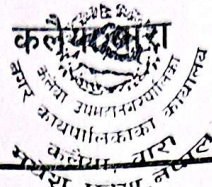 कलैया, बारा
कलैया उपमहानगरपालिका
नगर कार्यपालिकाको कार्यालय
कलैया, बारा
नेपाल